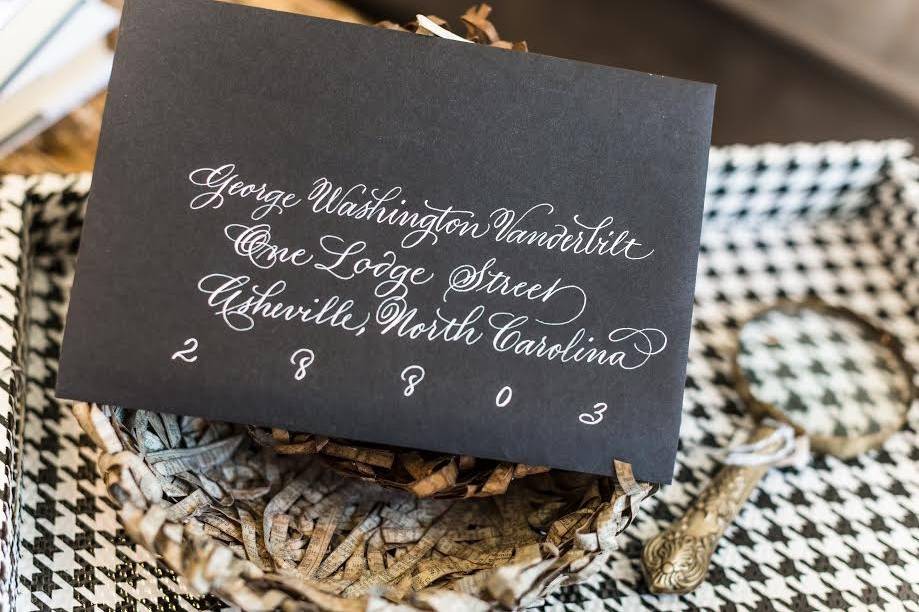 George Washington Vanderbilt
One Lodge Street
Asheville, North Carolina
2 8 8 0 3